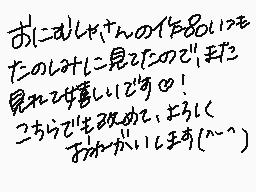 おにむしゃさんの作品いつも
たのしみに見てたので、また
見れて嬉しいです♡!
こちらでも改めて、よろしく
おねがいします(^~^)